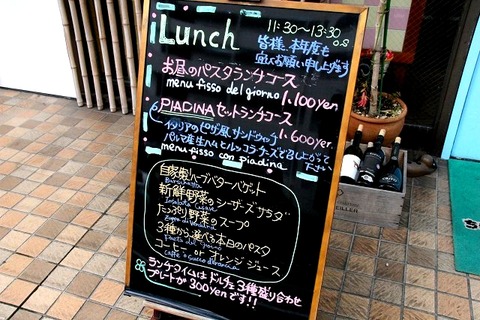 iLunch 11:30~13:30
o.s
皆様、本年度も
宜しくお願い申し上げます
お昼のパスタランチコース
menu fisso del giorno 1,100yen
PIADINAセットランチコース
イタリアのピザ風サンドウィッチ 1,600yen.
パルマ産生ハムとルッコラチーズを召し上がって
下さい
menu fisso con piadina
自家製ハーブバターバゲット
新鮮野菜のシーザーズサラダ
たっぷり野菜のスープ
3種から選べる本日のパスタ
コーヒー or オレンジジュース
ランチタイムはドルチェ3種盛り合わせ
プレートが300yenです!!